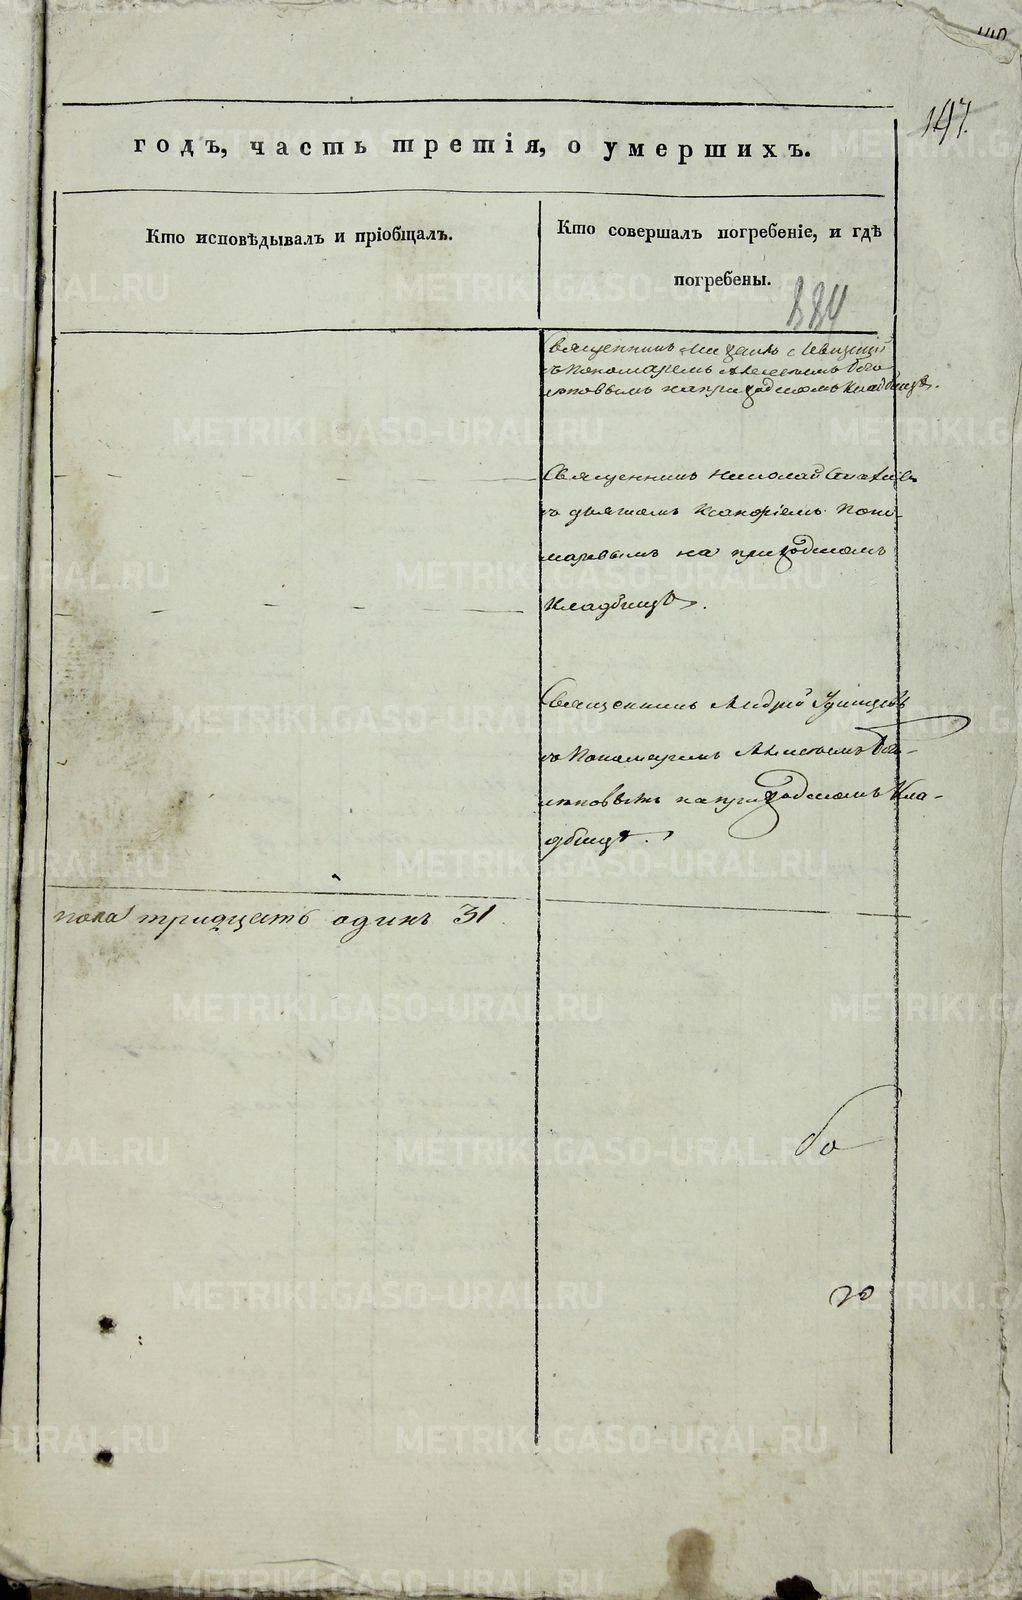 147.
годъ, часть третія, о умершихъ.
Кто исповѣдывалъ и пріобщалъ.
Кто совершалъ погребеніе, и гдѣ
погребены.
884
Священникъ Михаилъ Левицкій
съ Пономаремъ Алексѣемъ Бого
лѣповымъ на приходскомъ Кладбищѣ.
Священникъ Николай
съ дьячкомъ Поно-
маревымъ на приходскомъ
Кладбищѣ.
Священникъ Андрей
съ Пономаремъ Алексѣемъ Бого-
лѣповымъ на приходскомъ Кла-
дбищѣ.
пола тридцать одинъ 31
METRIKI.GASO-URAL.RU